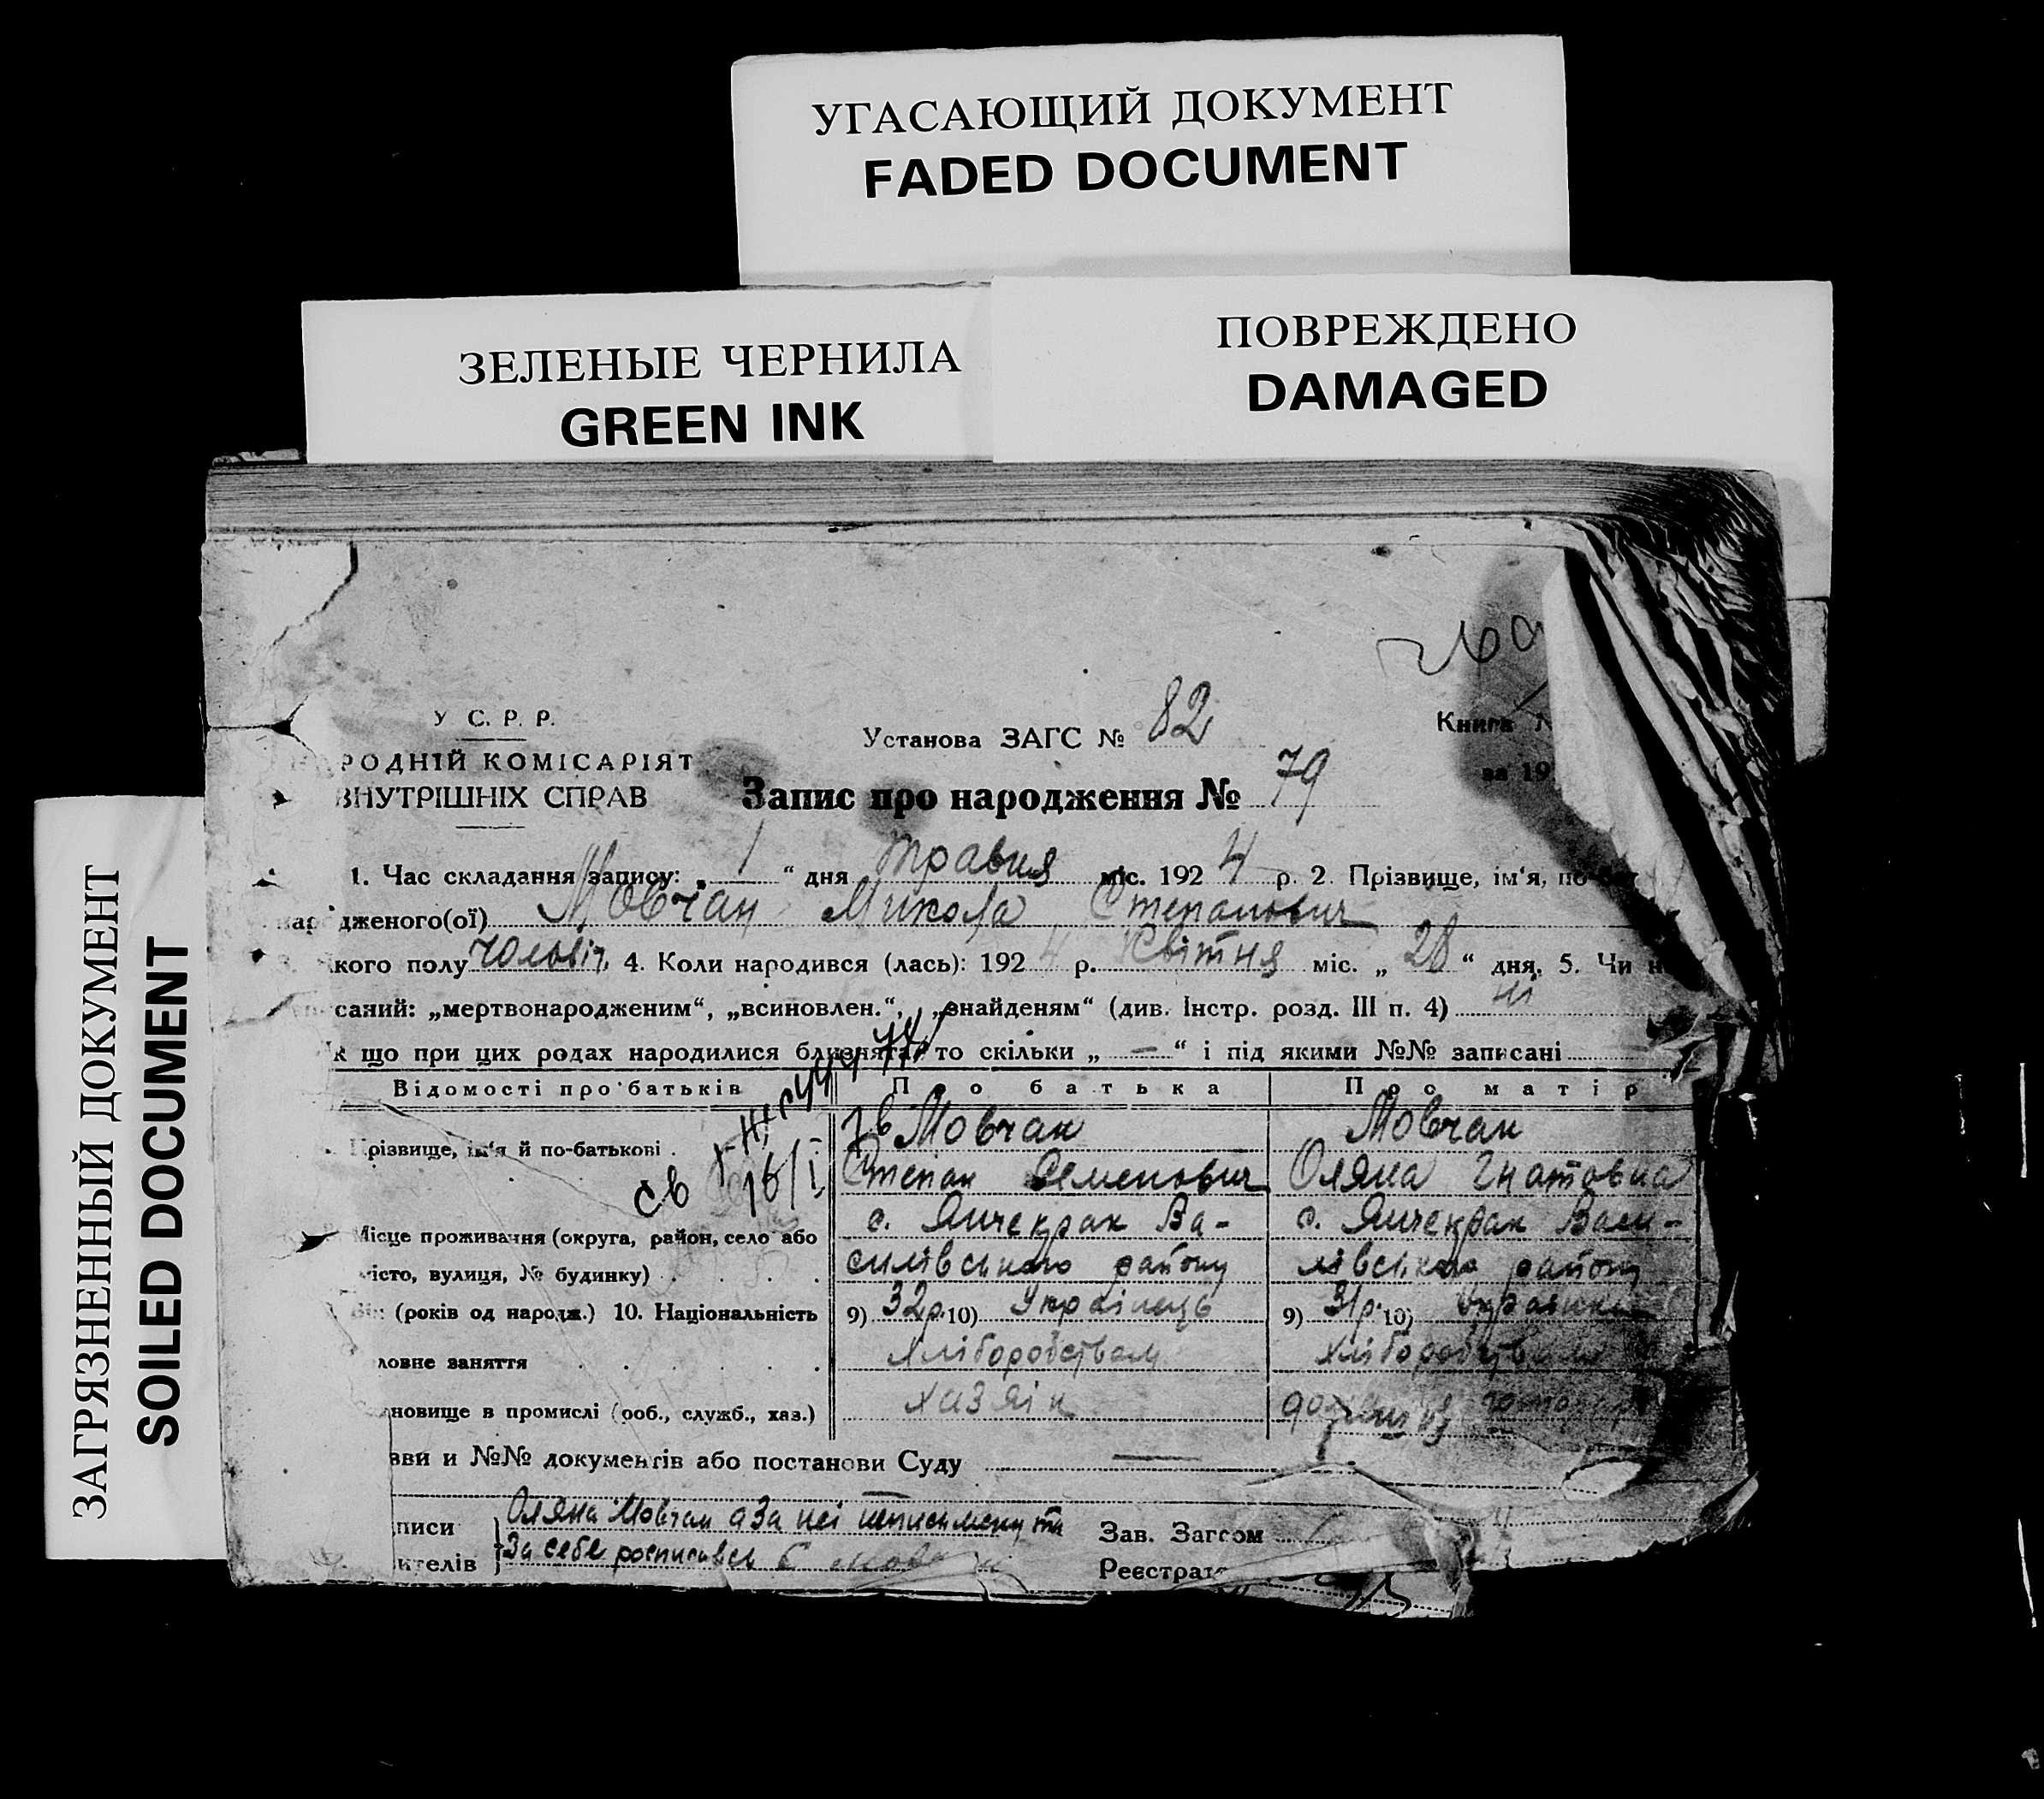 УГАСАЮЩИЙ ДОКУМЕНТ
FADED DOCUMENT
ЗЕЛЕНЫЕ ЧЕРНИЛА
GREEN INK
ПОВРЕЖДЕНО
DAMAGED
ЗАГРЯЗНЕННЫЙ ДОКУМЕНТ
SOILED DOCUMENT
У С. Р. Р.
РОДНІЙ КОМІСАРІЯТ
ВНУТРІШНІХ СПРАВ
Установа ЗАГС № 82
Книга
за 19
Запис про народження № 79
1. Час складання запису: „ 1 “ дня травня міс. 1924 р. 2. Прізвище, ім‘я, по
народженого(ої) Мовчан Микола Степанович
кого полу чоловіч. 4. Коли народився (лась): 1924 р. Квітня міс. „ 28 “ дня. 5. Чи н
саний: „мертвонародженим“, „всиновлен.“, „знайденям“ (див. Інстр. розд. III п. 4) ні
к що при цих родах народилися близнята, то скільки „ — “ і під якими №№ записані
Відомості про батьків Про батька Про матір
різвище, ім‘я й по-батькові . Мовчан Мовчан
св 16/I
Степан Семенович Оляна Гнатовна
Місце проживання (округа, район, село або с. Янчекрак Ва- с. Янчекрак Васи-
місто, вулиця, № будинку) . . . . силівського району лівського району
Вік (років од народж.) 10. Національність 9) 32р. 10) Українець 9) 31р. 10) Українка
ловне заняття . . . . . хліборобством хліборобством
новище в промислі (роб., служб., хаз.) хазяїн
зви и №№ документів або постанови Суду —
писи Оляна Мовчан а за неї неписьменну та Зав. Загсом
ителів За себе росписавсь Реєстрат